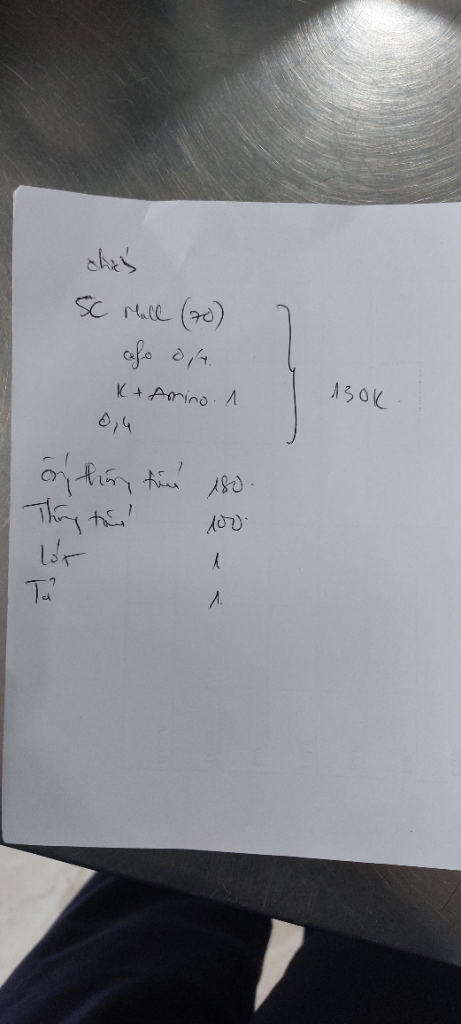 SC Mall (70)
cefo 0,4.
K + Amino. 1
0,4
130K.
Ống thông tiểu 180.
Thông tiểu 100.
Lót 1
Tã 1.